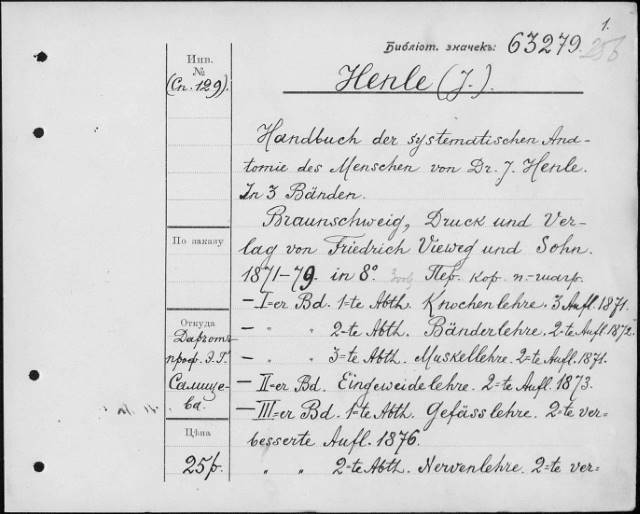 1.
Библіот. значекъ: 63279.
256
Инв.
№
(Сп. 129).
Henle (J.).
Handbuch der systematischen Ana-
tomie des Menschen von Dr. J. Henle.
In 3 Bänden.
Braunschweig, Druck und Ver-
По заказу
lag von Friedrich Vieweg und Sohn.
1871-79. in 8º. Пер. кор. п.-шагр.
— I=er Bd. 1=te Abth. Knochenlehre. 3 Aufl. 1871.
Откуда
Даръ отъ
проф. Э.Г.
Салище-
ва.
— " 2=te Abth. Bänderlehre. 2=te Aufl. 1872.
" " 3=te Abth. Muskellehre. 2=te Aufl. 1871.
— II=er Bd. Eingeweidelehre. 2=te Aufl. 1873.
— III=er Bd. 1=te Abth. Gefässlehre. 2=te ver-
besserte Aufl. 1876.
Цѣна
25 р.
" " 2=te Abth. Nervenlehre. 2=te ver=